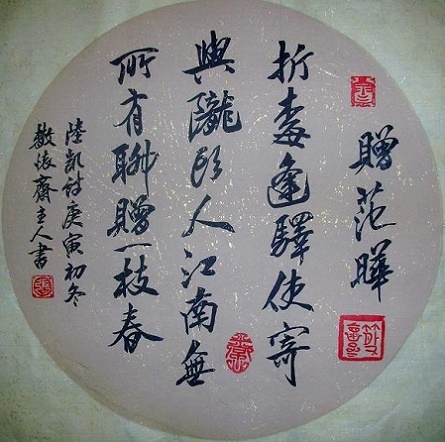 贈范曄
折梅逢驛使寄
與隴頭人江南無
所有聊贈一枝春
陸凱詩庚寅初冬
齋主人書